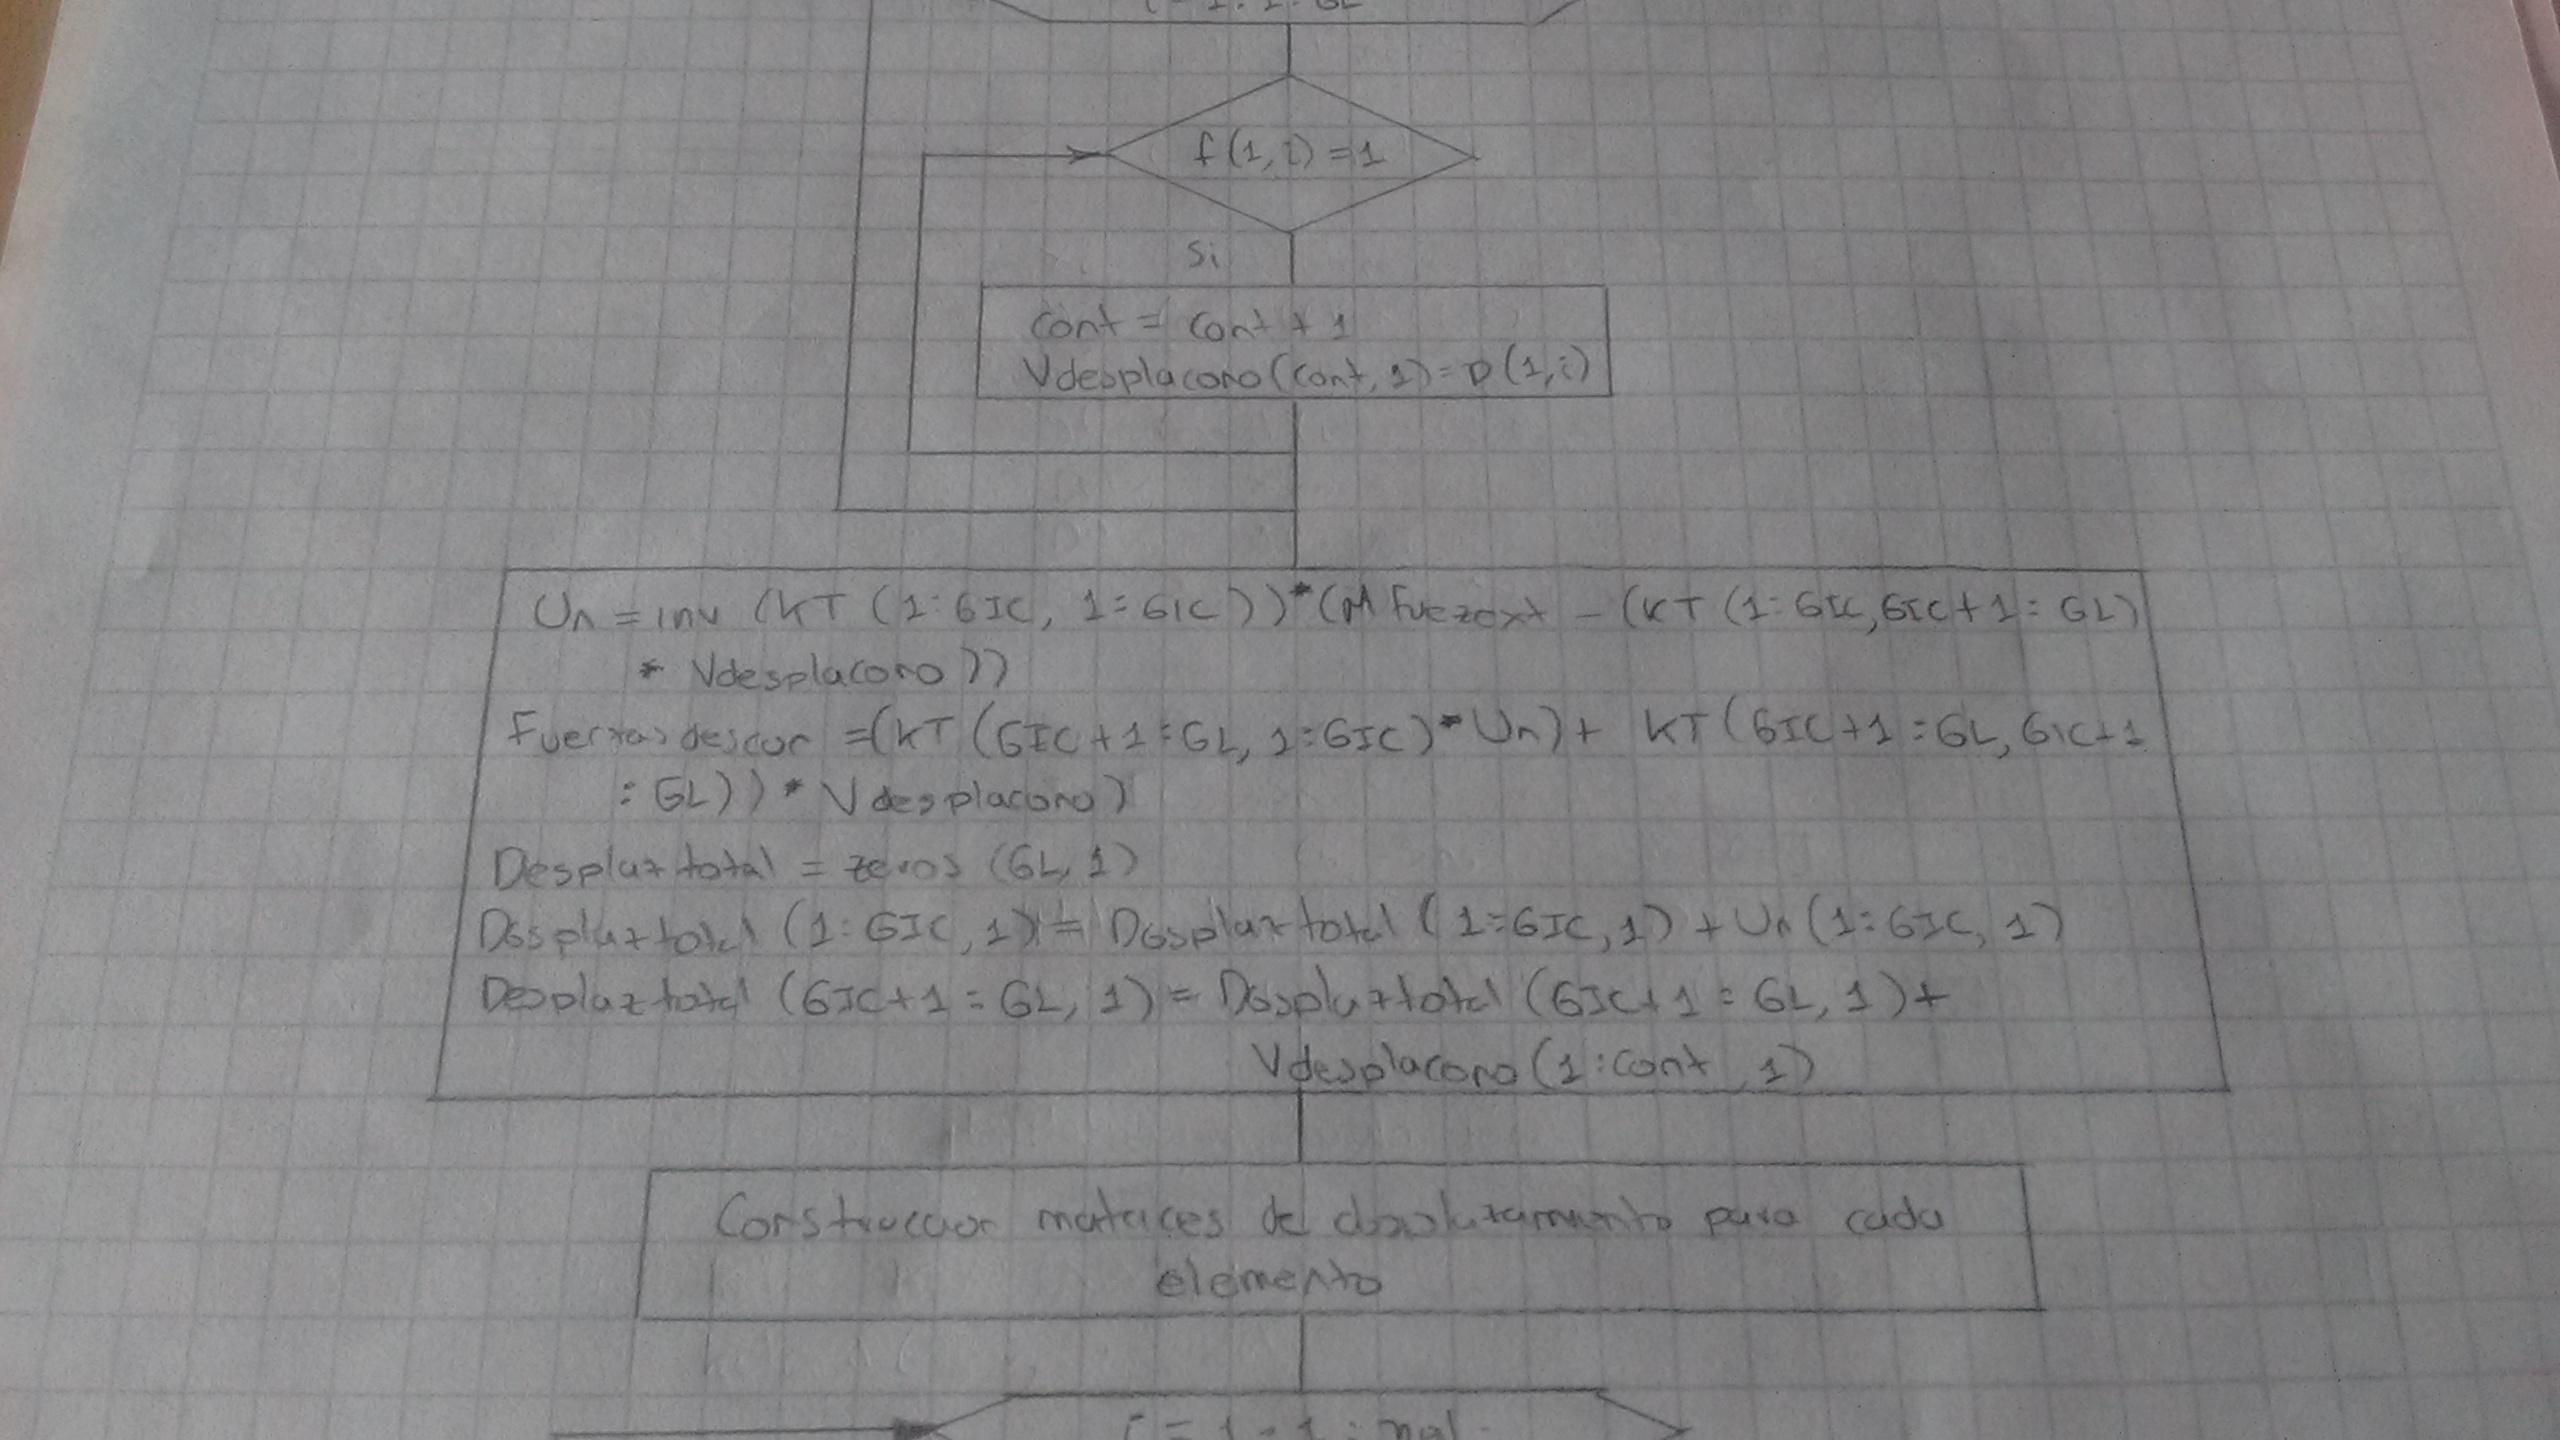 i = 1 : 1 : GL
f(1,i)=1
Si
Cont = Cont + 1
Vdesplacono(Cont,1)=D(1,i)
Un = inv (KT (1:GIC, 1:GIC))*(M Fuezext - (KT (1:GIC,GIC+1:GL)
* Vdesplacono))
Fuerzasdescon =(KT (GIC+1:GL, 1:GIC)*Un)+ KT(GIC+1:GL, GIC+1
:GL))*Vdesplacono)
Desplaztotal = zeros (GL,1)
Desplaztotal (1:GIC,1)= Desplaztotal (1:GIC,1)+Un(1:GIC,1)
Desplaztotal (GIC+1:GL,1)= Desplaztotal (GIC+1:GL,1)+
Vdesplacono(1:Cont,1)
Construccion matrices de desplazamiento para cada
elemento
= 1 : 1 :